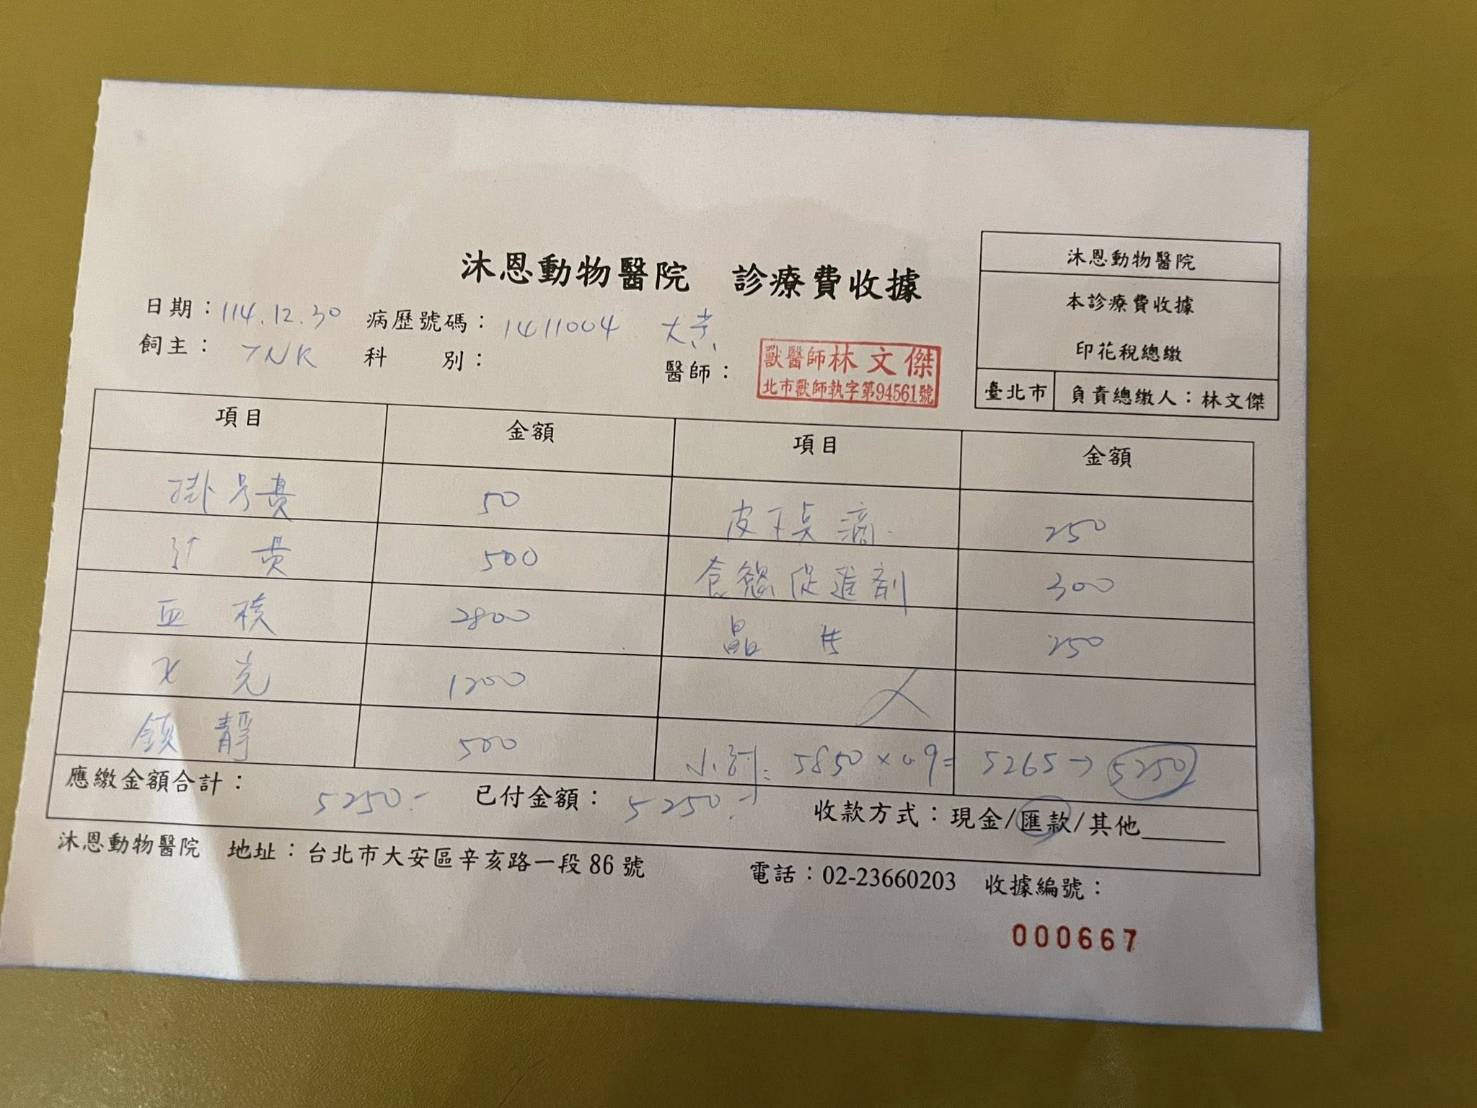 沐恩動物醫院 診療費收據
沐恩動物醫院
本診療費收據
印花稅總繳
臺北市 負責總繳人：林文傑
日期：114.12.30 病歷號碼：1411004
飼主：TNR 科 別： 醫師：
獸醫師林文傑
北市獸師執字第94561號
項目 金額 項目 金額
掛号費 50 皮下点滴 250
診費 500 食慾促進劑 300
血檢 2800 晶片 250
X光 1200
鎮靜 500 小計: 5850×0.9= 5265→5250
應繳金額合計： 5250.- 已付金額： 5250.- 收款方式：現金/匯款/其他
沐恩動物醫院 地址：台北市大安區辛亥路一段86號 電話：02-23660203 收據編號：
000667